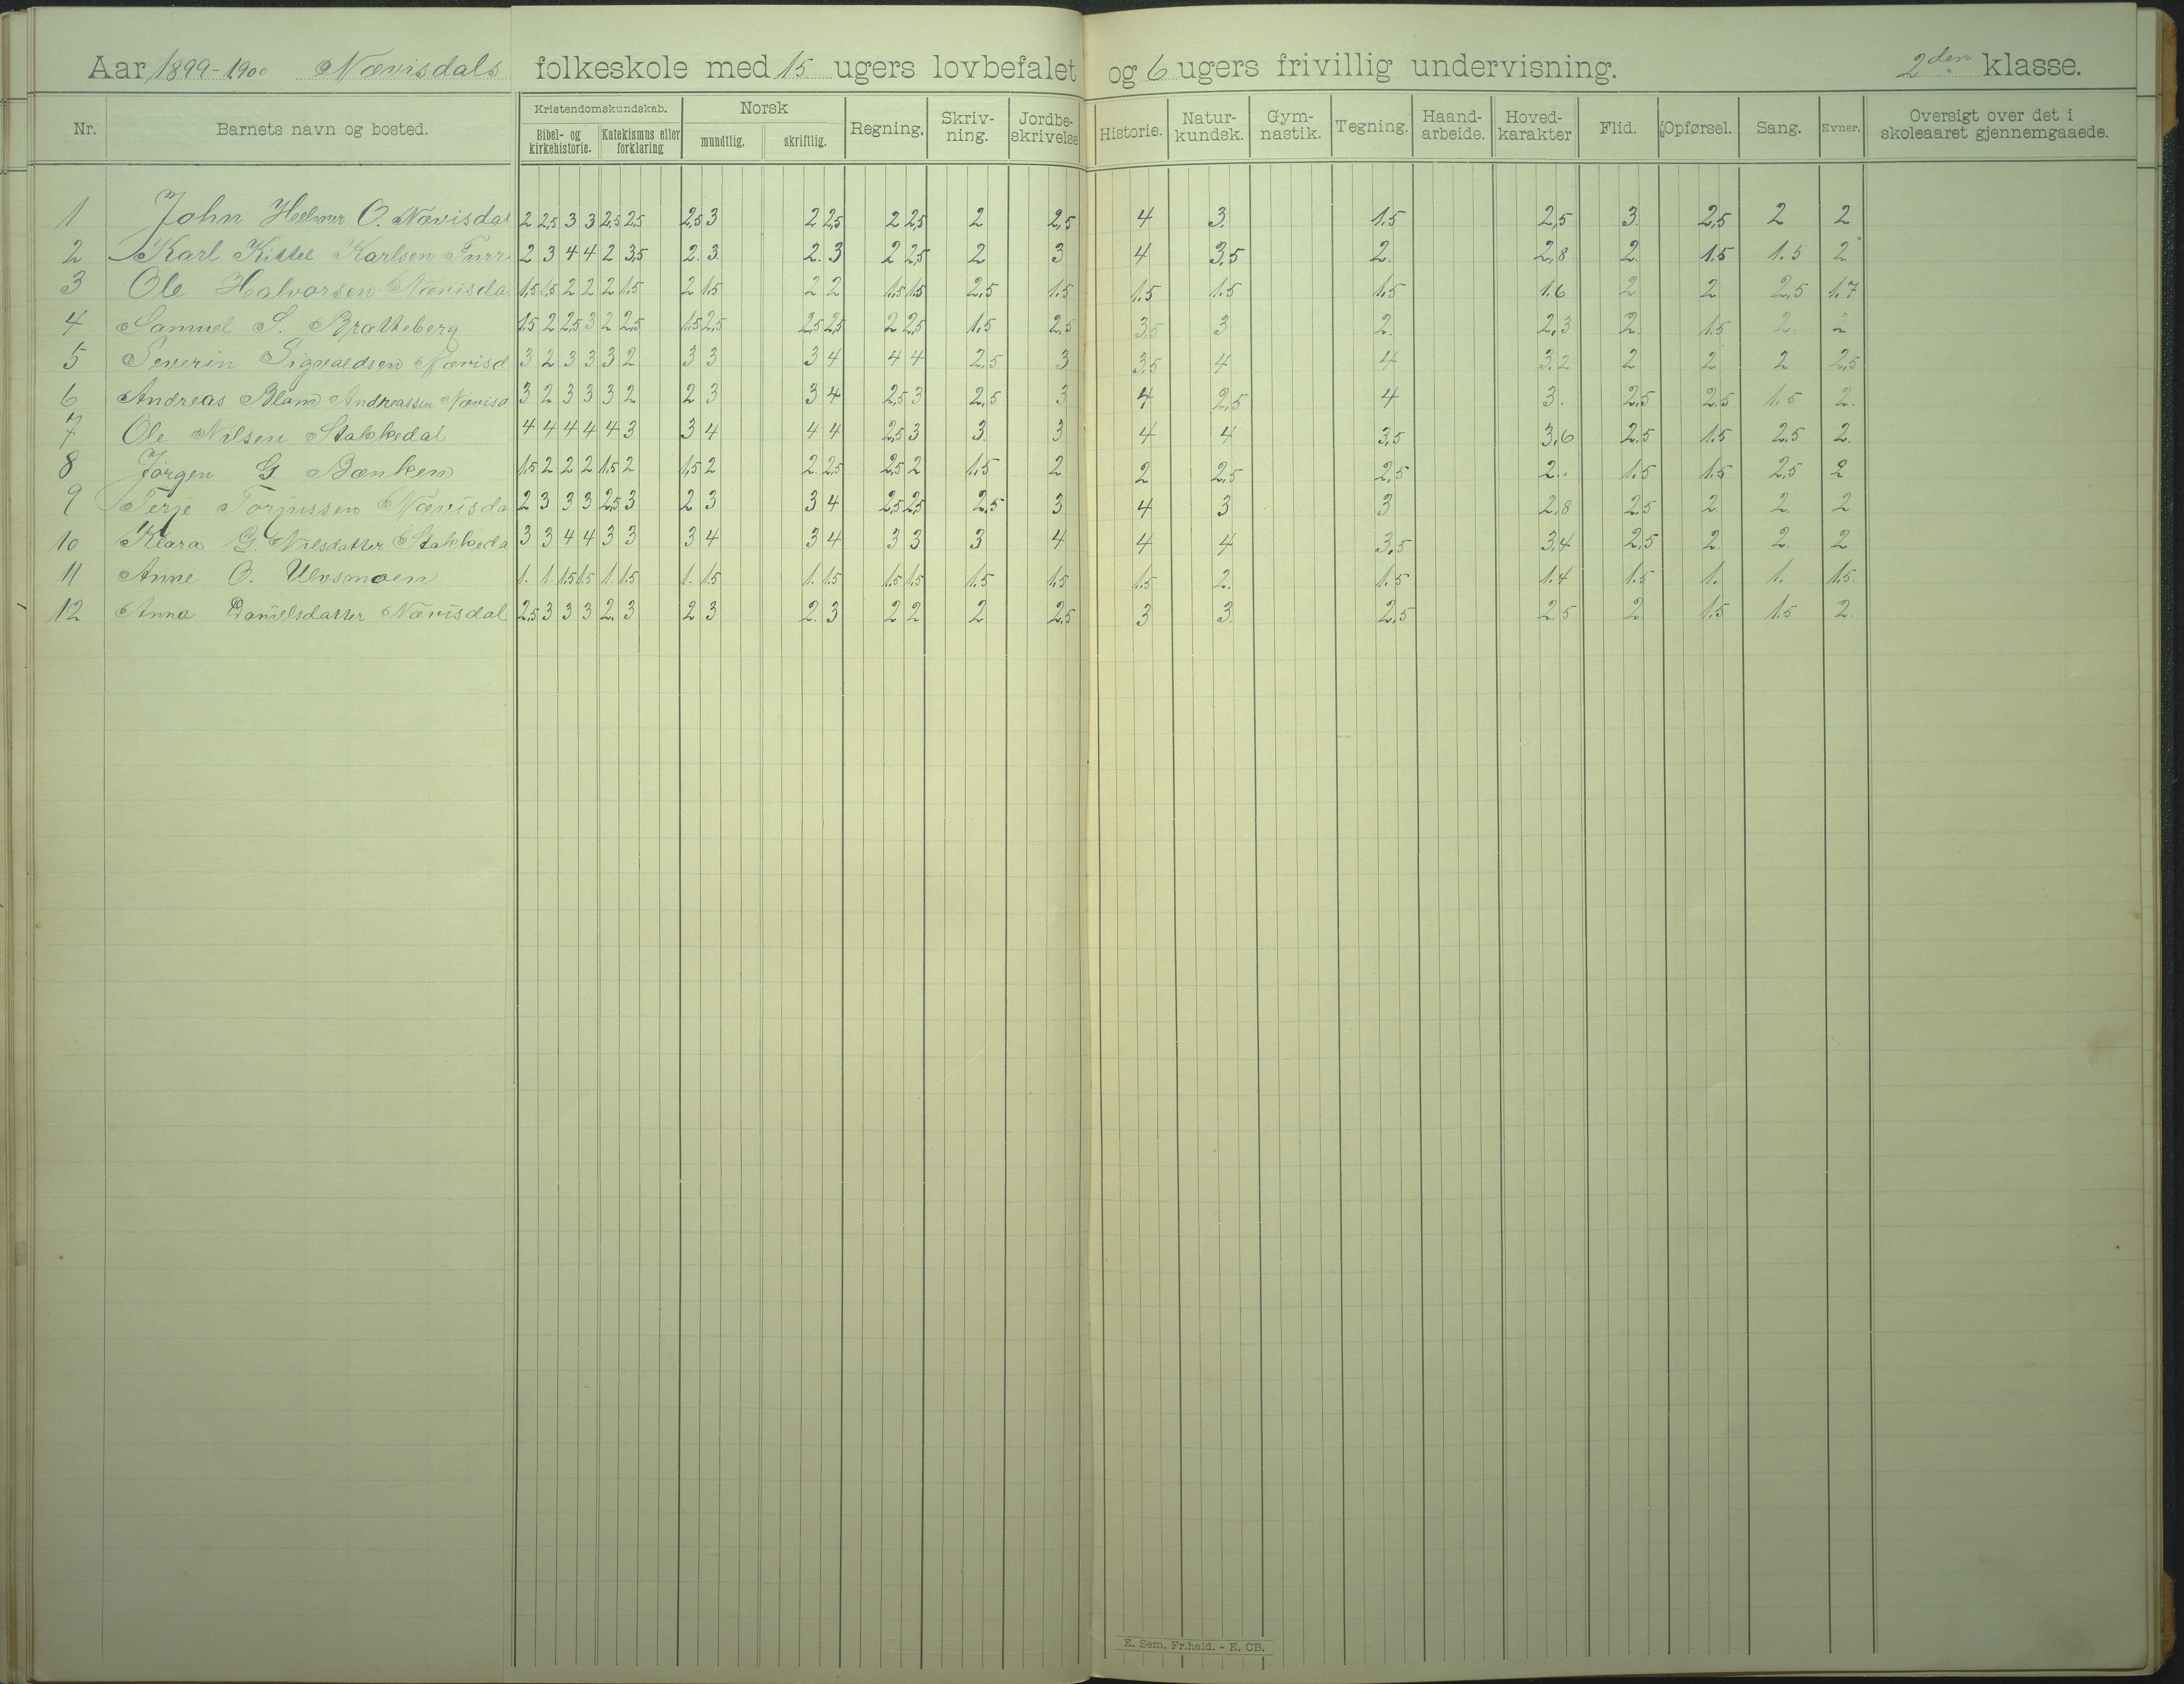 Aar 1899-1900 Nævisdals folkeskole med 15 ugers lovbefalet og 6 ugers frivillig undervisning. 2den klasse.
Nr. Barnets navn og bosted. Kristendomskundskab. Bibel- og kirkehistorie. Katekismus eller forklaring Norsk mundtlig. skriftlig. Regning. Skriv-ning. Jordbe-skrivelse Historie. Natur-kundsk. Gym-nastik. Tegning. Haand-arbeide. Hoved-karakter Flid. Opførsel. Sang. Evner. Oversigt over det i skoleaaret gjennemgaaede.
1 John Helmer O. Nævisdal 2 2,5 3 3 2,5 2,5 2,5 3 2 2,5 2 2,5 2 2,5 4 3. 1.5 2,5 3. 2,5 2 2
2 Karl Kittel Karlsen 2 3 4 4 2 3,5 2. 3. 2. 3 2 2,5 2 3 4 3,5 2. 2,8 2. 1.5 1.5 2
3 Ole Halvorsen Nævisda 1,5 1,5 2 2 2 1.5 2 1.5 2 2 1.5 1.5 2,5 1.5 1.5 1.5 1.5 1.6 2 2 2,5 1.7
4 Samuel S. Bratteberg 1.5 2 2,5 3 2 2,5 1.5 2,5 2,5 2,5 2 2,5 1.5 2,5 3,5 3 2. 2,3 2. 1.5 2. 2
5 Severin Sigvaldsen Nævisd 3 2 3 3 3 2 3 3 3 4 4 4 2,5 3 3,5 4 4 3.2 2 2 2 2,5
6 Andreas Blom Andreassen Nævisd 3 2 3 3 3 2 2 3 3 4 2,5 3 2,5 3 4 2,5 4 3. 2,5 2.5 1.5 2.
7 Ole Nilsen Stakkedal 4 4 4 4 4 3 3 4 4 4 2,5 3 3. 3 4 4 3,5 3,6 2.5 1.5 2,5 2.
8 Jørgen G. Bænken 1.5 2 2 2 1.5 2 1,5 2 2. 2,5 2,5 2 1.5 2 2 2,5 2,5 2.. 1.5 1.5 2,5 2
9 Terje Torjussen Nævisda 2 3 3 3 2,5 3 2 3 3 4 2,5 2,5 2.5 3 4 3 3 2,8 2,5 2 2. 2
10 Klara G. Nilsdatter Stakkeda 3 3 4 4 3 3 3 4 3 4 3 3 3 4 4 4 3,5 3.4 2,5 2. 2. 2
11 Anne O. Ulvsmoen 1. 1. 1.5 1.5 1. 1.5 1. 1.5 1. 1.5 1.5 1.5 1.5 1.5 1.5 2. 1.5 1.4 1.5 1. 1. 1.5.
12 Anna Danielsdatter Nævisdal 2,5 3 3 3 2. 3 2 3 2. 3 2 2 2 2,5 3 3. 2,5 2.5 2. 1.5 1.5 2.
E. Sem, Fr.hald. - E. CB.